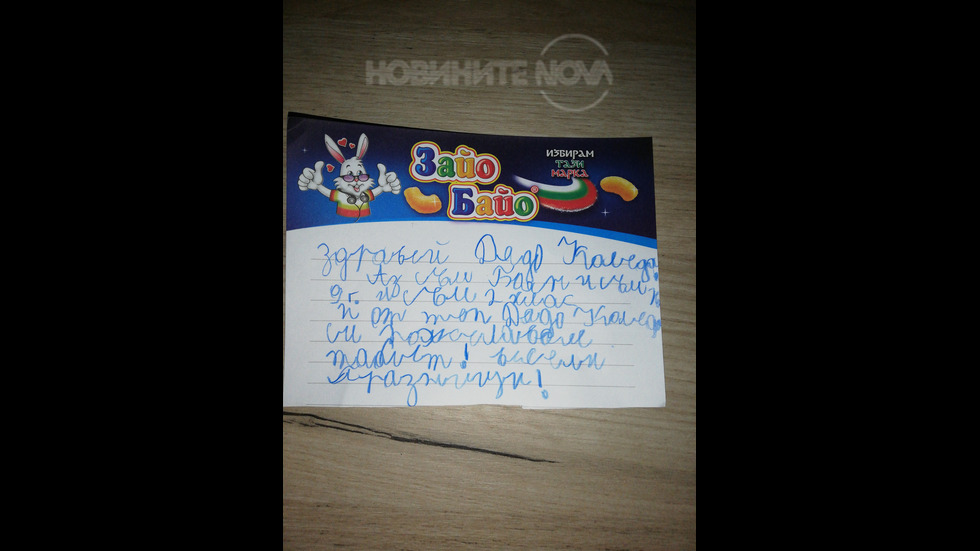 НОВИНИТЕ NOVA
Зайо
Байо®
ИЗБИРАМ
ТАЗИ
МАРКА
здравей Дядо Коледа!
Аз съм и съм на
9 г. и съм 2 клас
и от теб Дядо Коледа
си пожелавам
таблет! весели
празници!